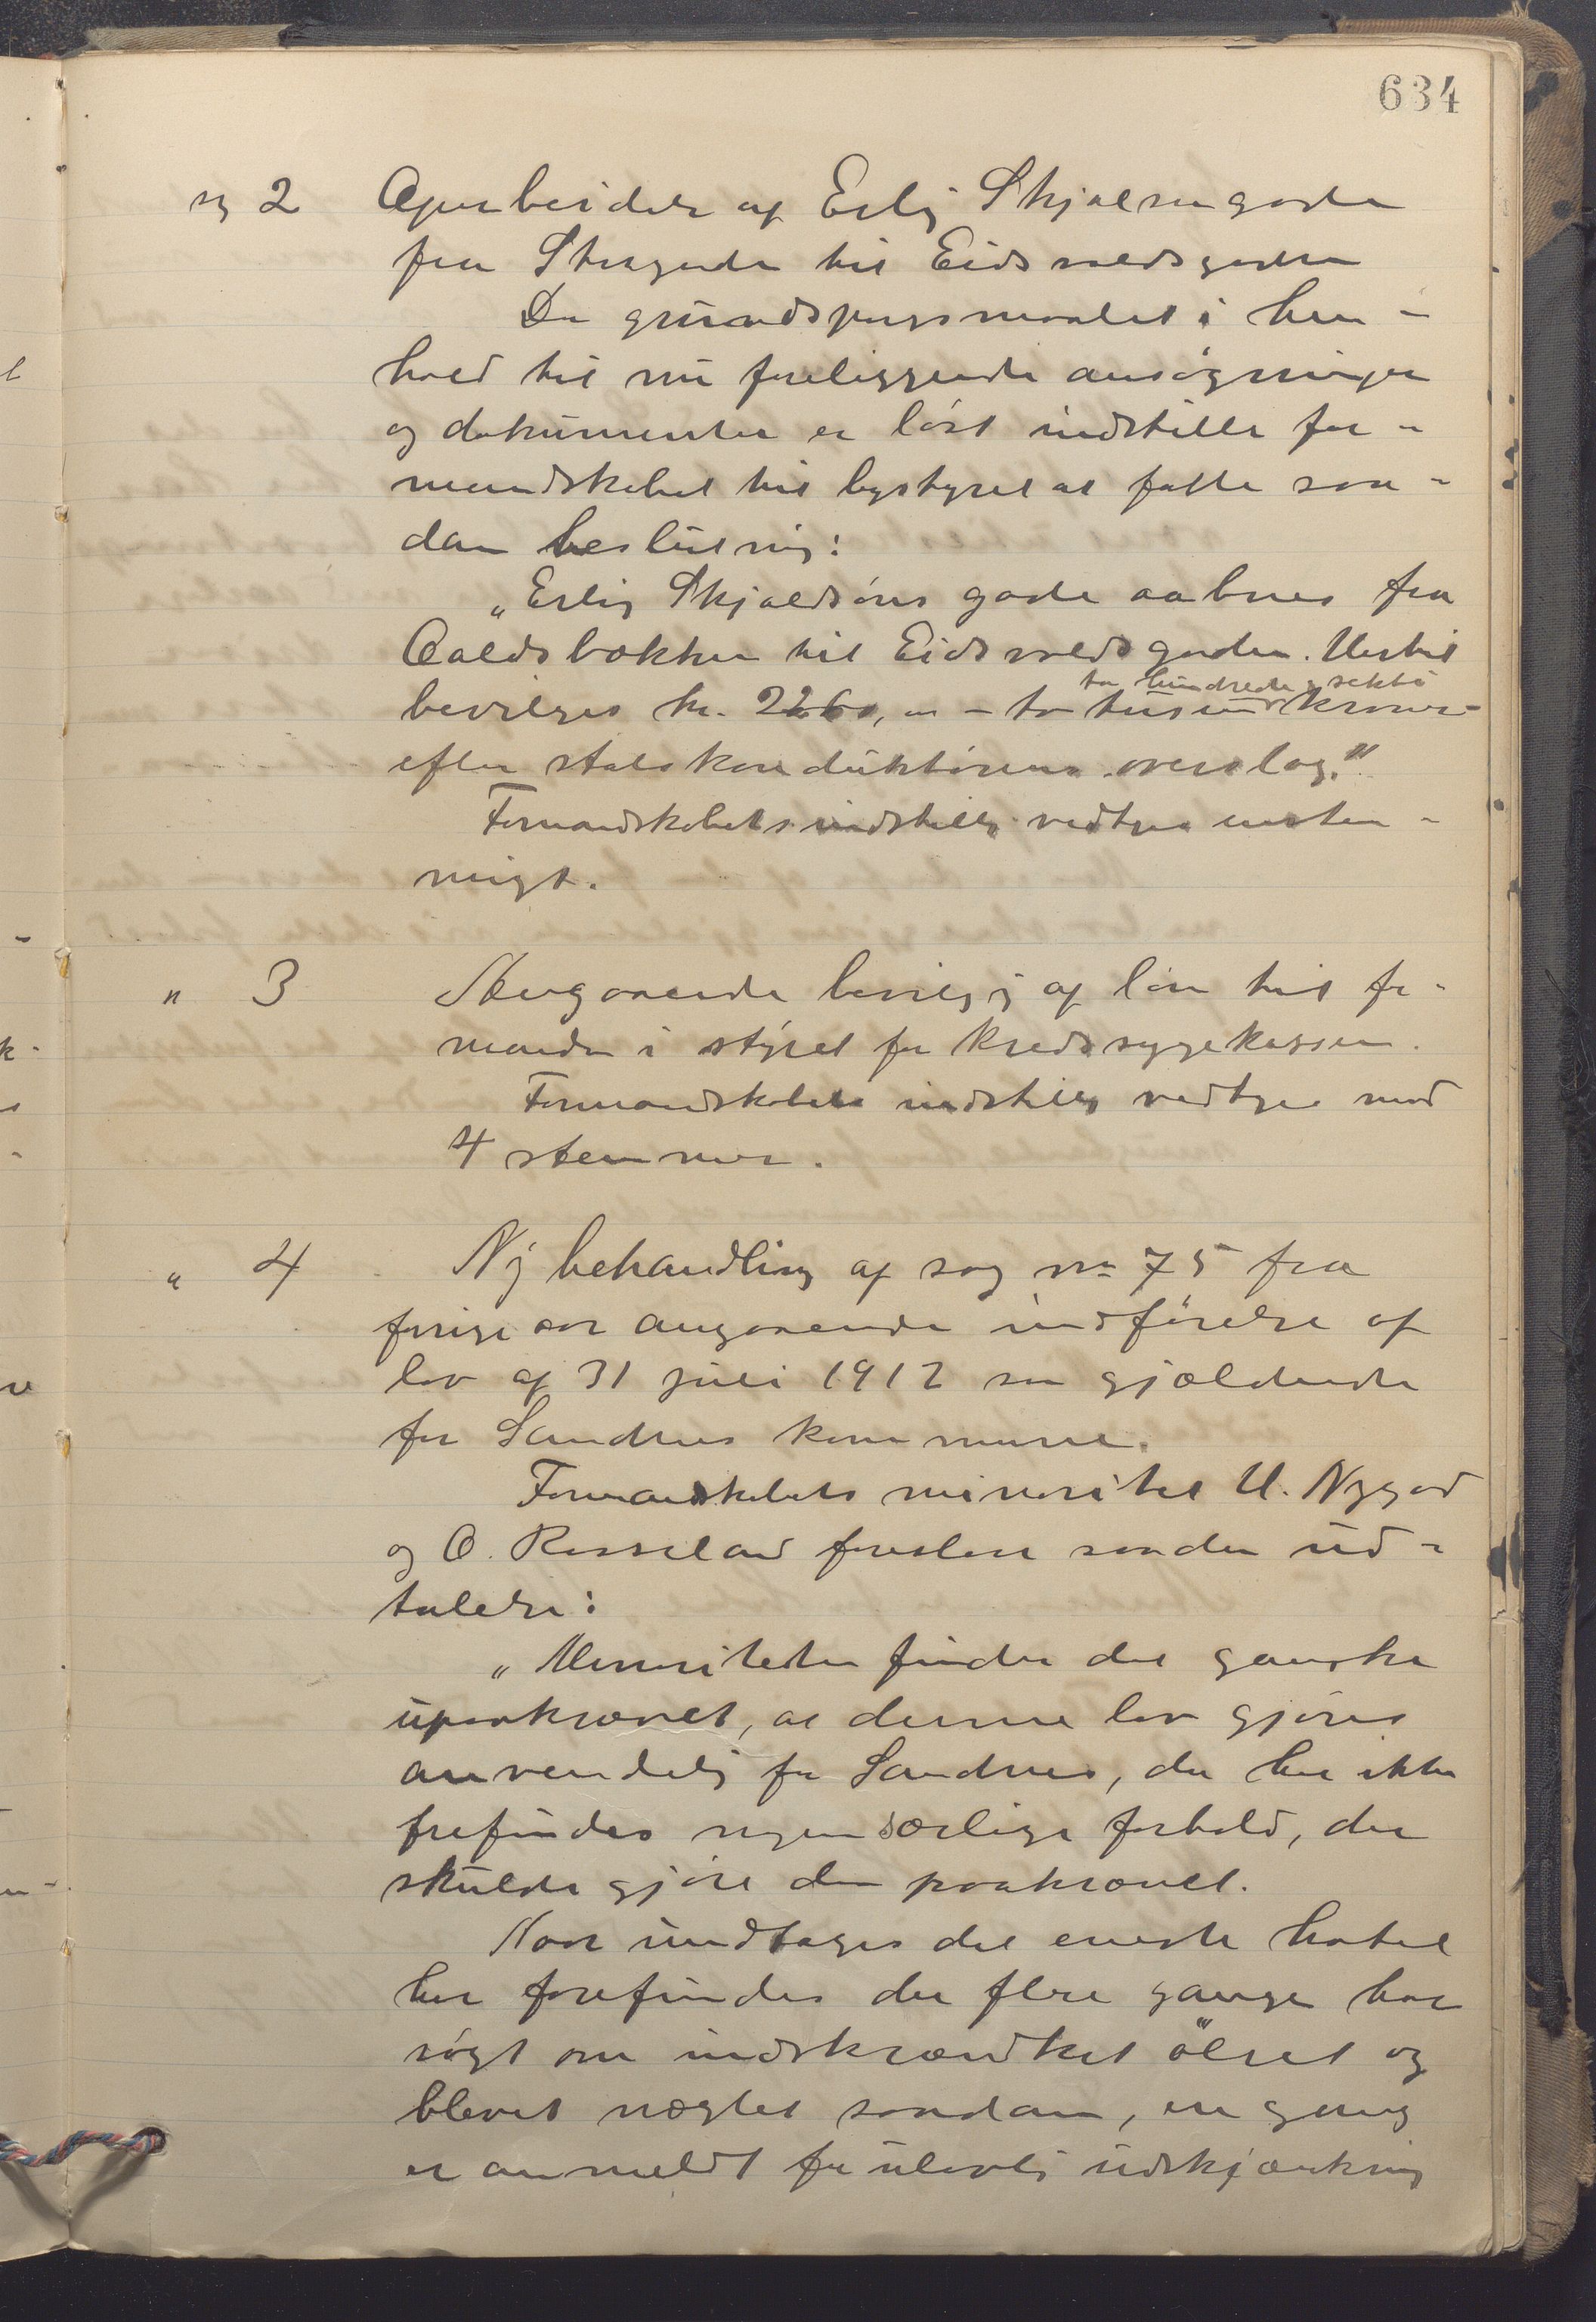 634
sg 2 Oparbeidelse af Erlig Skjalsøngade
fra Storgaden til Eidsvoldsgaden
Da grundspørgsmaalet i hen-
hold til nu foreliggende ansøgninger
og dokumenter er løst indstiller for-
mandskabet til bystyret at fatte saa-
dan beslutning:
„Erling Skjaldsøns gade aabnes fra
Aaldsbakken til Eidsvoldsgaden. Hertil
to hundrede seksti
bevilges kr. 2260,00 - to tusind kroner -
efter stadskonduktørens overslag."
Formandskabets indstilling vedtges enstem-
migt.
" 3 Angaaende bevilgg af løn til for-
manden i styret for kredssygekassen.
Formandskabets indstilling vedtges mod
4 stemmer.
" 4 Ny behandling af sag no 75 fra
forrige aar angaaende indførelse af
lov af 31 juli 1912 som gjældende
for Sandnes kommune.
Formandskabets minoritet U. Nygaard
og O. Rosseland foreslaar saadan ud-
talelse:
„Minoriteten finder det ganske
upaakrævet, at denne lov gjøres
anvendelig for Sandnes, da her ikke
forefindes nogen særlige forhold, der
skulde gjøre den paakrævet.
Naar undtages det eneste hotel
her forefindes der flere gange har
søgt om indskrænket ølret og
blevet nægtet saadan, en gang
er anmeldt for ulovlig udskjænkning